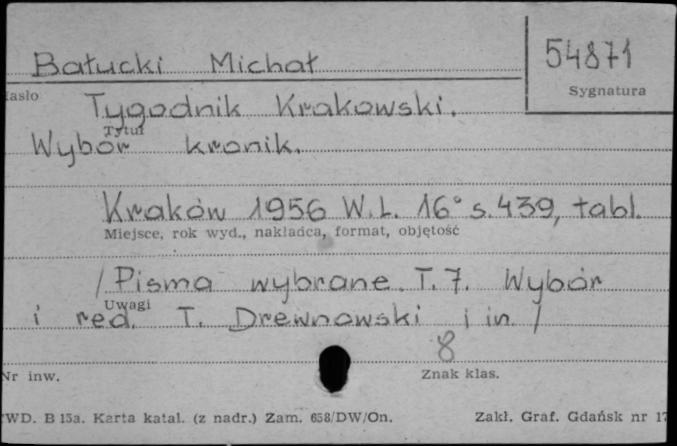 Bałucki Michał
54871
Hasło
Sygnatura
Tygodnik Krakowski.
Tytuł
Wybór kronik.
Kraków 1956 W.L. 16° s.439, tabl.
Miejsce, rok wyd., nakładca, format, objętość
/Pisma wybrane. T. 7. Wybór
Uwagi
i red. T. Drewnowski i in./
8
Nr inw.
Znak klas.
WD. B 15a. Karta katal. (z nadr.) Zam. 658/DW/On.
Zakł. Graf. Gdańsk nr 17